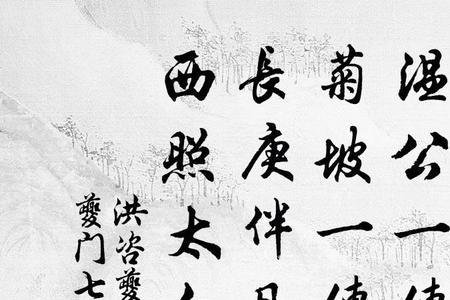 温公一
菊坡一
長庚伴月
西照太
洪咨夔
夔门七